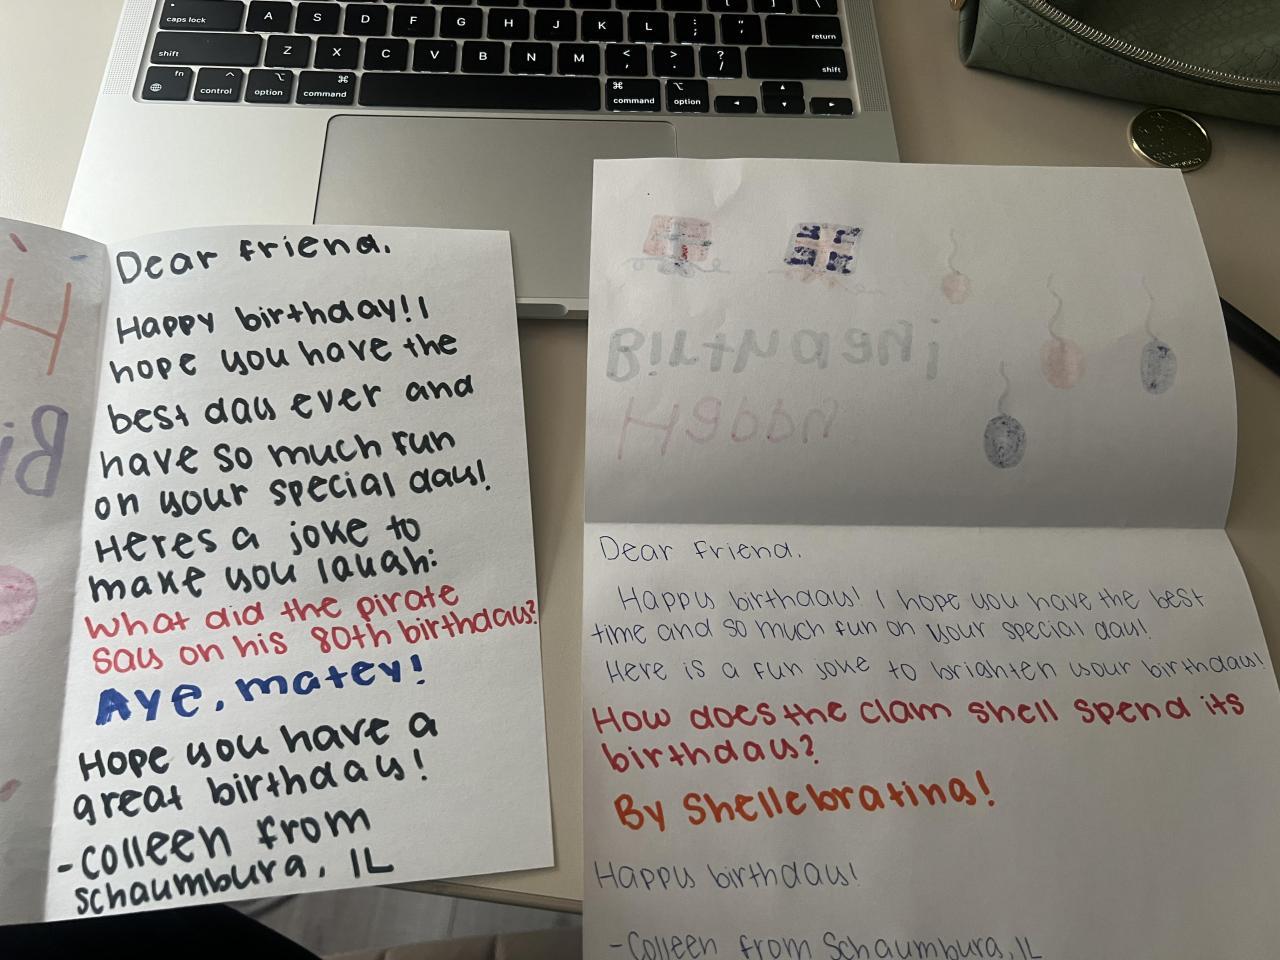 caps lock
A S D F G H J K L : ; " '
return
shift
Z X C V B N M < , > . ? /
shift
fn control option command
command option
Dear friend,
Happy birthday! I
hope you have the
best day ever and
have so much fun
on your special day!
Heres a joke to
make you laugh:
What did the pirate
say on his 80th birthday?
Aye, matey!
Hope you have a
great birthday!
-Colleen from
Schaumburg, IL
Birthday!
Happy
Dear friend,
Happy birthday! I hope you have the best
time and so much fun on your special day!
Here is a fun joke to brighten your birthday!
How does the clam shell spend its
birthday?
By Shellebrating!
Happy birthday!
-Colleen from Schaumburg, IL
H
Bi